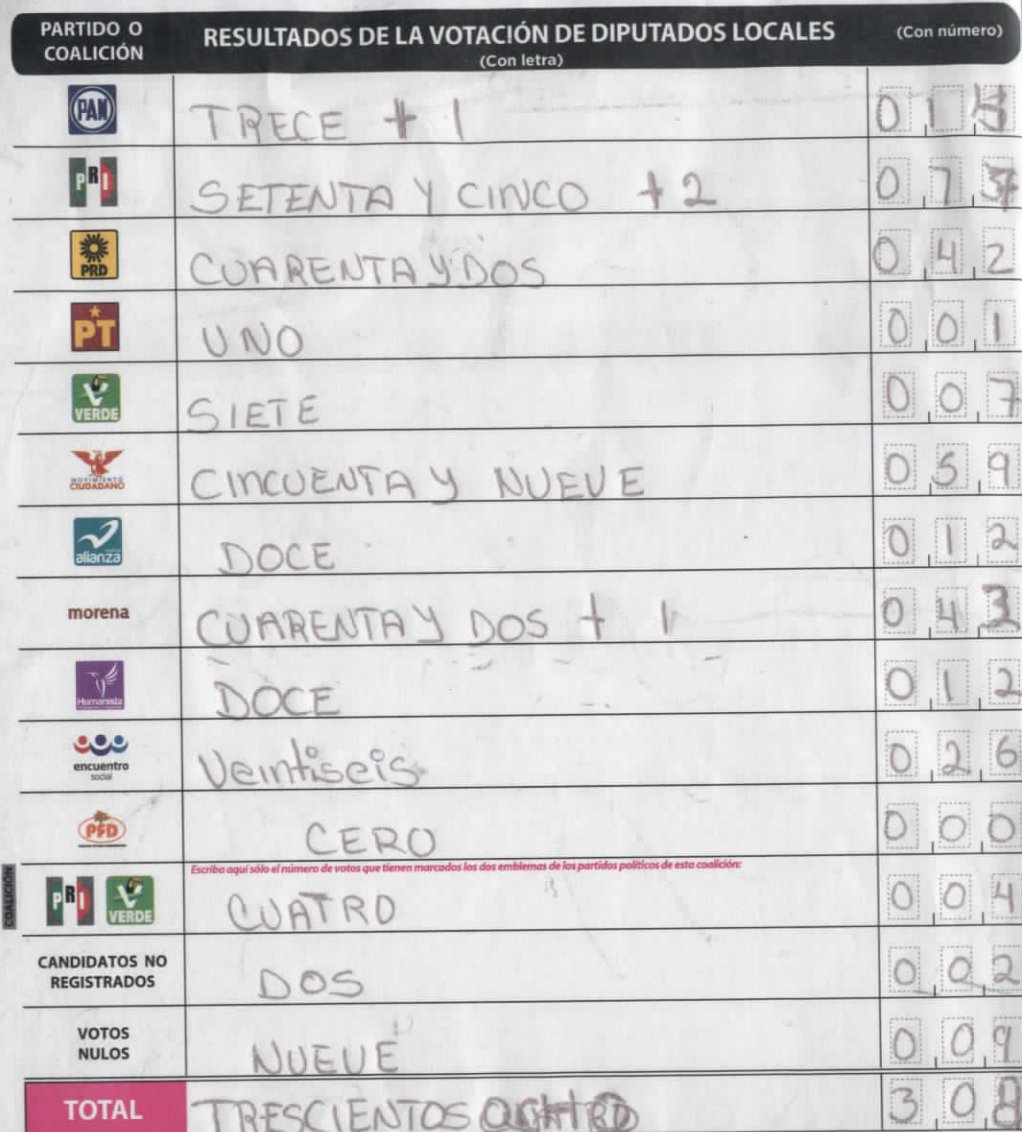 PARTIDO O COALICIÓN RESULTADOS DE LA VOTACIÓN DE DIPUTADOS LOCALES (Con letra) (Con número)
PAN TRECE + 1 0 1
PRI SETENTA Y CINCO + 2 0 7
PRD CUARENTA Y DOS 0 4 2
PT UNO 0 0 1
VERDE SIETE 0 0 7
MOVIMIENTO CIUDADANO CINCUENTA Y NUEVE 0 5 9
alianza DOCE 0 1 2
morena CUARENTA Y DOS + 1 0 4 3
Humanista DOCE 0 1 2
encuentro social Veintiseis 0 2 6
PFD CERO 0 0 0
Escriba aquí sólo el número de votos que tienen marcados los dos emblemas de los partidos políticos de esta coalición:
COALICIÓN PRI VERDE CUATRO 0 0 4
CANDIDATOS NO REGISTRADOS DOS 0 0 2
VOTOS NULOS NUEVE 0 0 9
TOTAL TRESCIENTOS 3 0 8